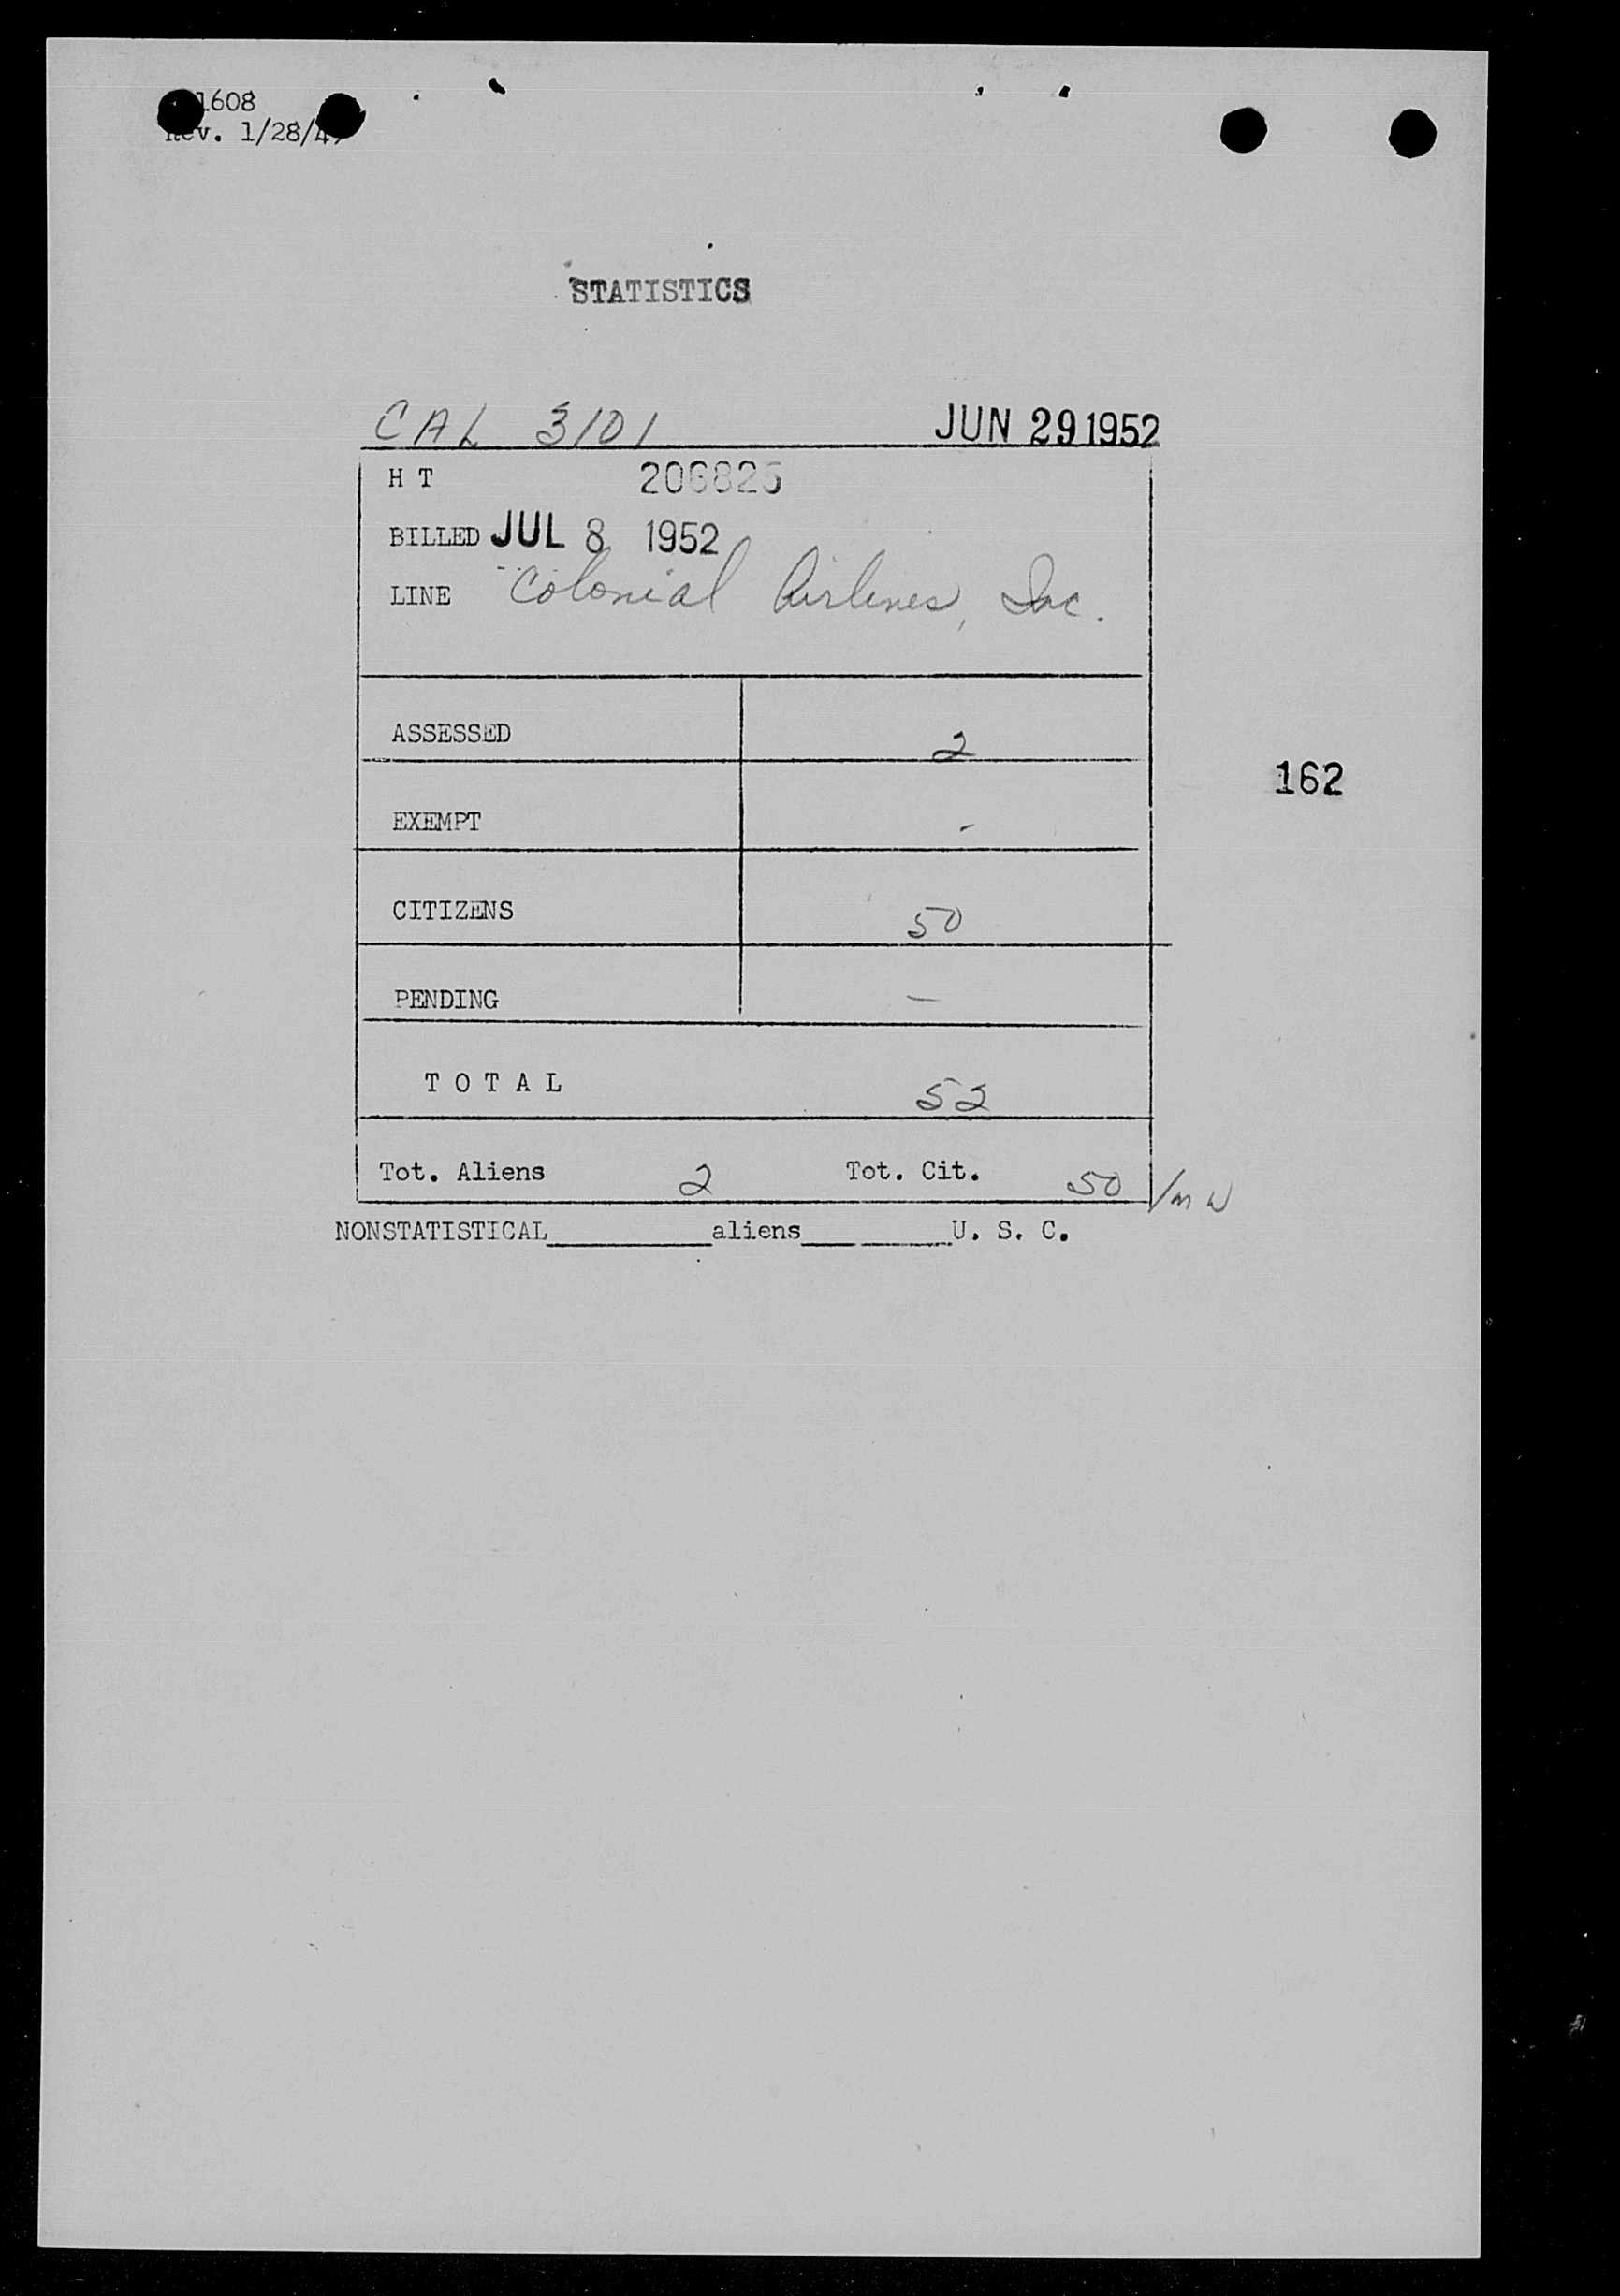 1608
Rev. 1/28/49
STATISTICS
CAL 3101 JUN 29 1952
H T 206825
BILLED JUL 8 1952
LINE Colonial Airlines, Inc.
ASSESSED 2
162
EXEMPT -
CITIZENS 50
PENDING —
T O T A L 52
Tot. Aliens 2 Tot. Cit. 50 /mw
NONSTATISTICAL__________aliens__________U. S. C.